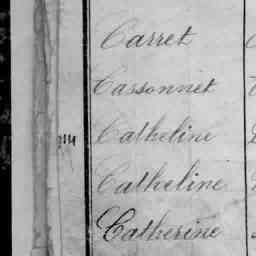 Carret
Cassonnet
Catheline
Catheline
Catherine